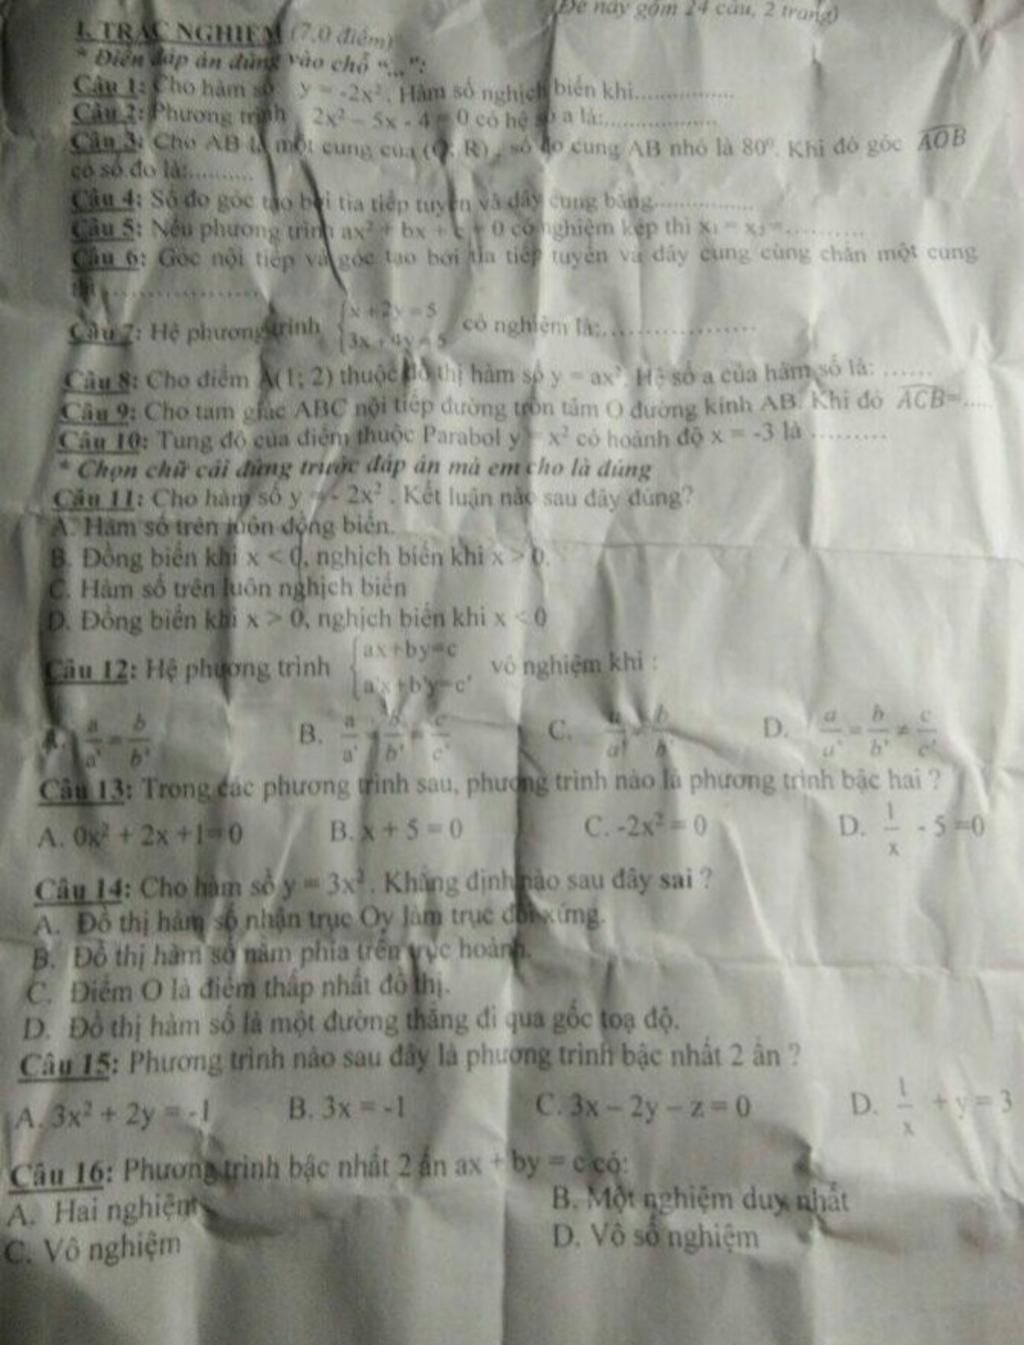 (Đề này gồm 24 câu, 2 trang)
I. TRẮC NGHIỆM (7,0 điểm)
* Điền đáp án đúng vào chỗ “...”:
Câu 1: Cho hàm số y = -2x². Hàm số nghịch biến khi...............
Câu 2: Phương trình 2x² – 5x - 4 = 0 có hệ số a là:.................
Câu 3: Cho AB là một cung của (O; R), số đo cung AB nhỏ là 80⁰. Khi đó góc AOB
có số đo là:..........
Câu 4: Số đo góc tạo bởi tia tiếp tuyến và dây cung bằng...............
Câu 5: Nếu phương trình ax² + bx + c = 0 có nghiệm kép thì x₁ = x₂ =............
Câu 6: Góc nội tiếp và góc tạo bởi tia tiếp tuyến và dây cung cùng chắn một cung
thì......................
Câu 7: Hệ phương trình { x + 2y = 5 có nghiệm là:......................
3x + 4y = 5
Câu 8: Cho điểm A(1; 2) thuộc đồ thị hàm số y = ax². Hệ số a của hàm số là: ......
Câu 9: Cho tam giác ABC nội tiếp đường tròn tâm O đường kính AB. Khi đó ACB=....
Câu 10: Tung độ của điểm thuộc Parabol y = x² có hoành độ x = -3 là ..........
* Chọn chữ cái đứng trước đáp án mà em cho là đúng
Câu 11: Cho hàm số y = - 2x². Kết luận nào sau đây đúng?
A. Hàm số trên luôn đồng biến.
B. Đồng biến khi x < 0, nghịch biến khi x > 0.
C. Hàm số trên luôn nghịch biến
D. Đồng biến khi x > 0, nghịch biến khi x < 0
Câu 12: Hệ phương trình { ax+by=c vô nghiệm khi :
a'x+b'y=c'
A. a/a' = b/b' B. a/a' = b/b' = c/c' C. a/a' ≠ b/b' D. a/a' = b/b' ≠ c/c'
Câu 13: Trong các phương trình sau, phương trình nào là phương trình bậc hai ?
A. 0x² + 2x +1=0 B. x + 5 = 0 C. -2x² = 0 D. 1/x - 5 =0
Câu 14: Cho hàm số y = 3x². Khẳng định nào sau đây sai ?
A. Đồ thị hàm số nhận trục Oy làm trục đối xứng.
B. Đồ thị hàm số nằm phía trên trục hoành.
C. Điểm O là điểm thấp nhất đồ thị.
D. Đồ thị hàm số là một đường thẳng đi qua gốc toạ độ.
Câu 15: Phương trình nào sau đây là phương trình bậc nhất 2 ẩn ?
A. 3x² + 2y = -1 B. 3x = -1 C. 3x – 2y – z = 0 D. 1/x + y = 3
Câu 16: Phương trình bậc nhất 2 ẩn ax + by = c có:
A. Hai nghiệm B. Một nghiệm duy nhất
C. Vô nghiệm D. Vô số nghiệm